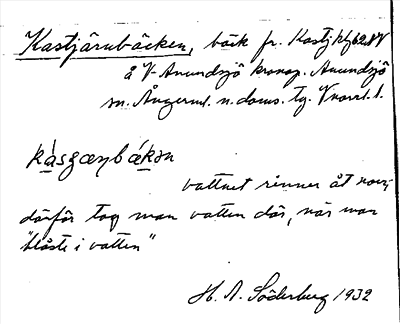 Kastjärnbäcken, bäck fr. Kastj. kfl 62 NV
å V. Anundsjö kronop. Anundsjö
sn. Ångerml. n. doms. tg. Vnorrl. l.
kàsgæɳbǽkən
vattnet rinner åt norr,
därför tog man vatten där, när man
"blåste i vatten"
H. A. Söderberg 1932